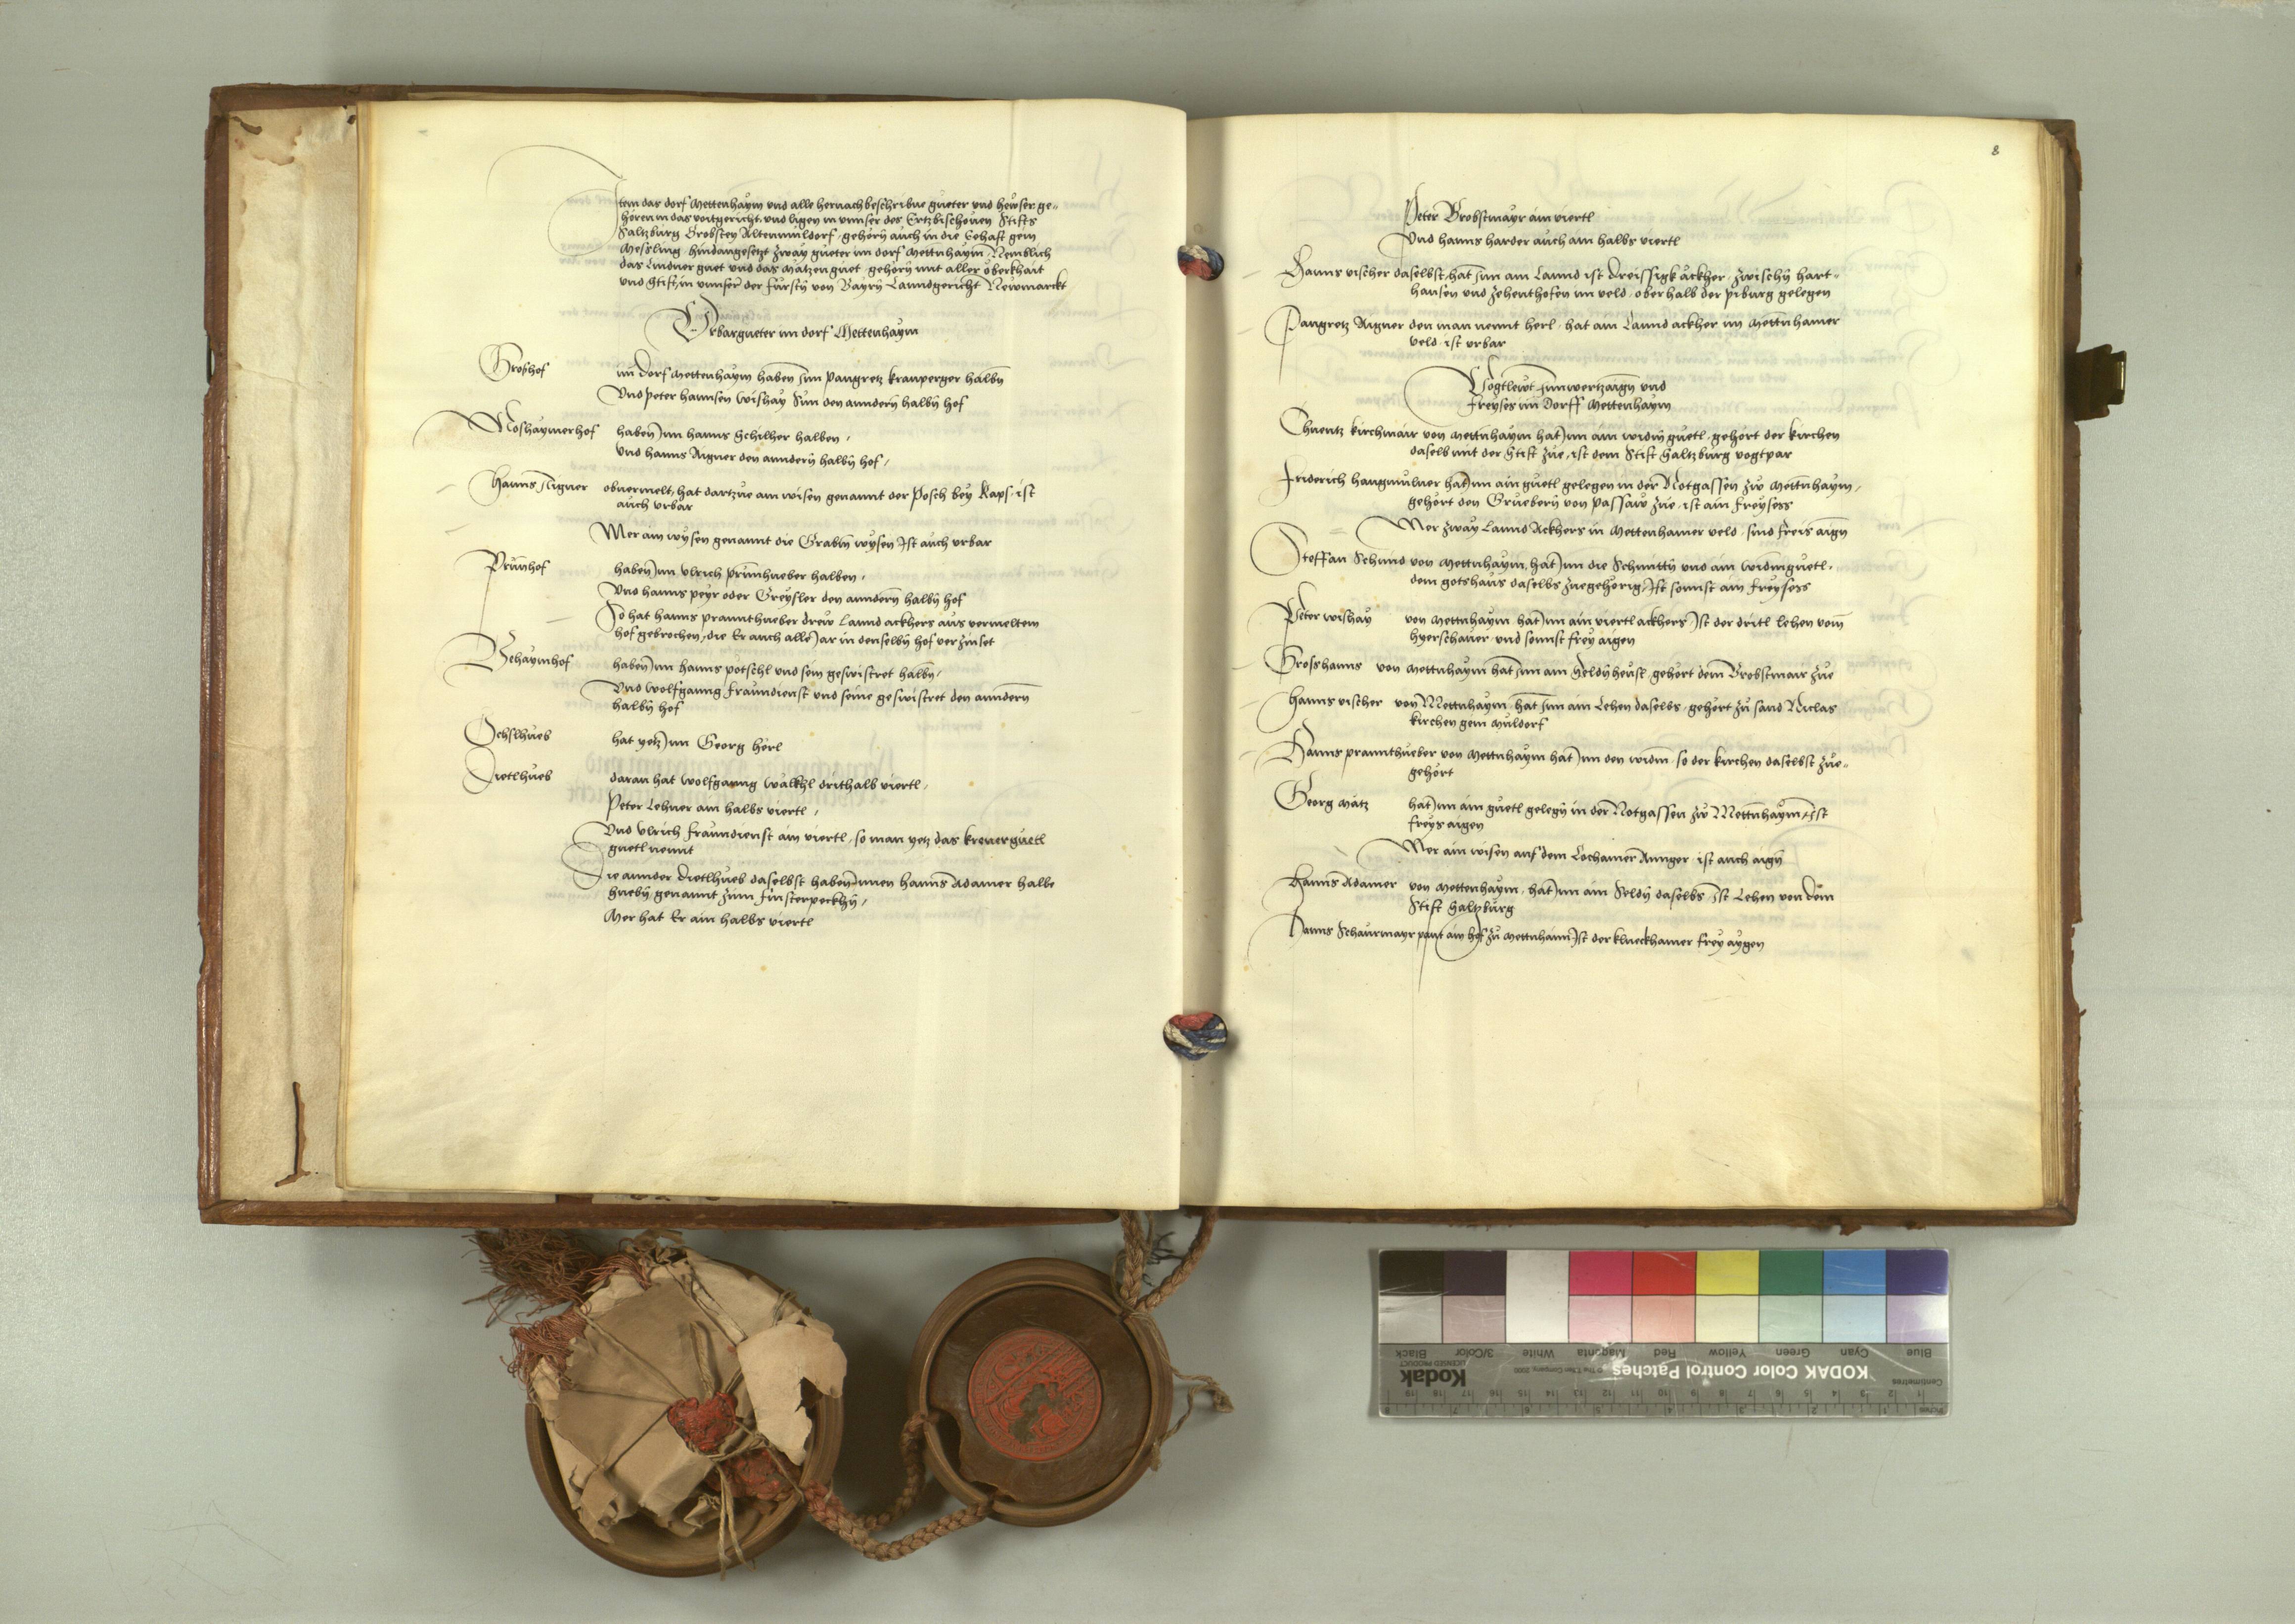 Item das dorf Mettenhaym und alle hernachbeschribne gueter und hewser ge-
hören in das voitgericht, und ligen in unnser des Ertzbischouen Stifts
Saltzburg Brobstey Altenmuldorf, gehörn auch in die Eehaft gein
Messling, hindangesetzt zway gueter im dorf Mettnhaym, Nemblich
das Lindner guet und das Mätzen guet, gehörn mit aller oberkhait
und Stift, in unnser der fürstn von Bayrn Lanndgericht Newmarckt
Urbargueter im dorf Mettenhaym
Groshof im dorf Mettenhaym haben inn Pangretz kranperger halbn
Und peter hannsen wishay Sun den anndern halbn hof
Moshaymerhof haben inn hanns Schilher halben,
Und hanns Aigner den anndern halbn hof,
Hanns Aigner obuermelt, hat dartzue ain wisen genannt der Posch bey Raps, ist
auch urbar
Mer ain wysen genannt die Grabn wysen Ist auch urbar
Prunhof haben inn Ulrich prunhueber halben,
Und hanns peyr oder Greysler den anndern halbn hof
So hat hanns prannthueber drew Lannd ackhers aus vermeltem
hof gebrochen, die Er auch alle Jar in denselbn hof verzinset
Behaymhof haben inn hanns pötschl und sein geswistret halbn,
Und wolfganng fraundienst und seine geswistret den anndern
halbn hof
Ochslhueb hat yetz inn Georg hörl
Dietlhueb daran hat wolfganng wälckhl drithalb viertl,
Peter Lehner ain halbs viertl,
Und Ulrich fraundienst ain viertl, so man yetz das kreuerguetl
guetl nennt
Die annder dietlhueb daselbst haben innen hanns Adamer halbe
hueben, genannt zum finsterpeckhn,
Mer hat Er ain halbs viertl
8
Peter Brobstmayr ain viertl
Und hanns harder auch ain halbs viertl
Hanns vischer daselbst, hat inn ain Lannd ist dreissigk äckher, zwischn hart-
hausen und zehenthofen im veld, oberhalb der piburg gelegen
Pangretz Aigner den man nennt herl, hat ain Lannd ackher im Mettnhamer
veld, ist urbar
Vogtlewt Innwertzaign und
freyses im Dorff Mettenhaym
Chuentz kirchmair von Mettnhaym hat inn ain widn guetl, gehört der kirchen
daselb mit der Stift zue, ist dem Stift Saltzburg vogtpar
Friderich hangmulner hat inn ain guetl gelegen in der Rotgassen zw Mettnhaym,
gehört den Gruebern von Passaw zue, ist ain freysess
Mer zway Lannd Ackhers in Mettenhamer veld, sind freis aign
Steffan Schmid von Mettnhaym, hat inn die Schmittn und ain widmguetl,
dem gotshaus daselbs zuegehörig, Ist sonnst ain freysess
Peter wishay von Mettnhaym, hat inn ain viertl ackhers Ist der dritl Lehen vom
hyerschauer und sonnst frey aigen
Groshanns von Mettnhaym hat inn ain Seldn heusl, gehört dem Brobstmair zue
Hanns vischer von Mettnhaym, hat inn ain Lehen daselbs, gehört zu sand Niclas
kirchen gein Muldorf
Hanns prannthueber von Mettnhaym hat inn den widm, so der kirchen daselbst zue-
gehört
Georg Mätz hat inn ain guetl gelegn in der Rotgassen zw Mettnhaym Ist
freys aigen
Mer ain wisen auf dem Lochamer Annger, ist auch aign
Hanns Adamer von Mettenhaym, hat inn ain Seldn daselbs, Ist Lehen von dem
Stift Saltzburg
Hanns Schaurmayr paut ain hof zu Mettnhaim Ist der klueckhamer frey aygen
KODAK Color Control Patches
Kodak
LICENSED PRODUCT
Blue Cyan Green Yellow Red Magenta White 3/Color Black
Centimetres
Inches